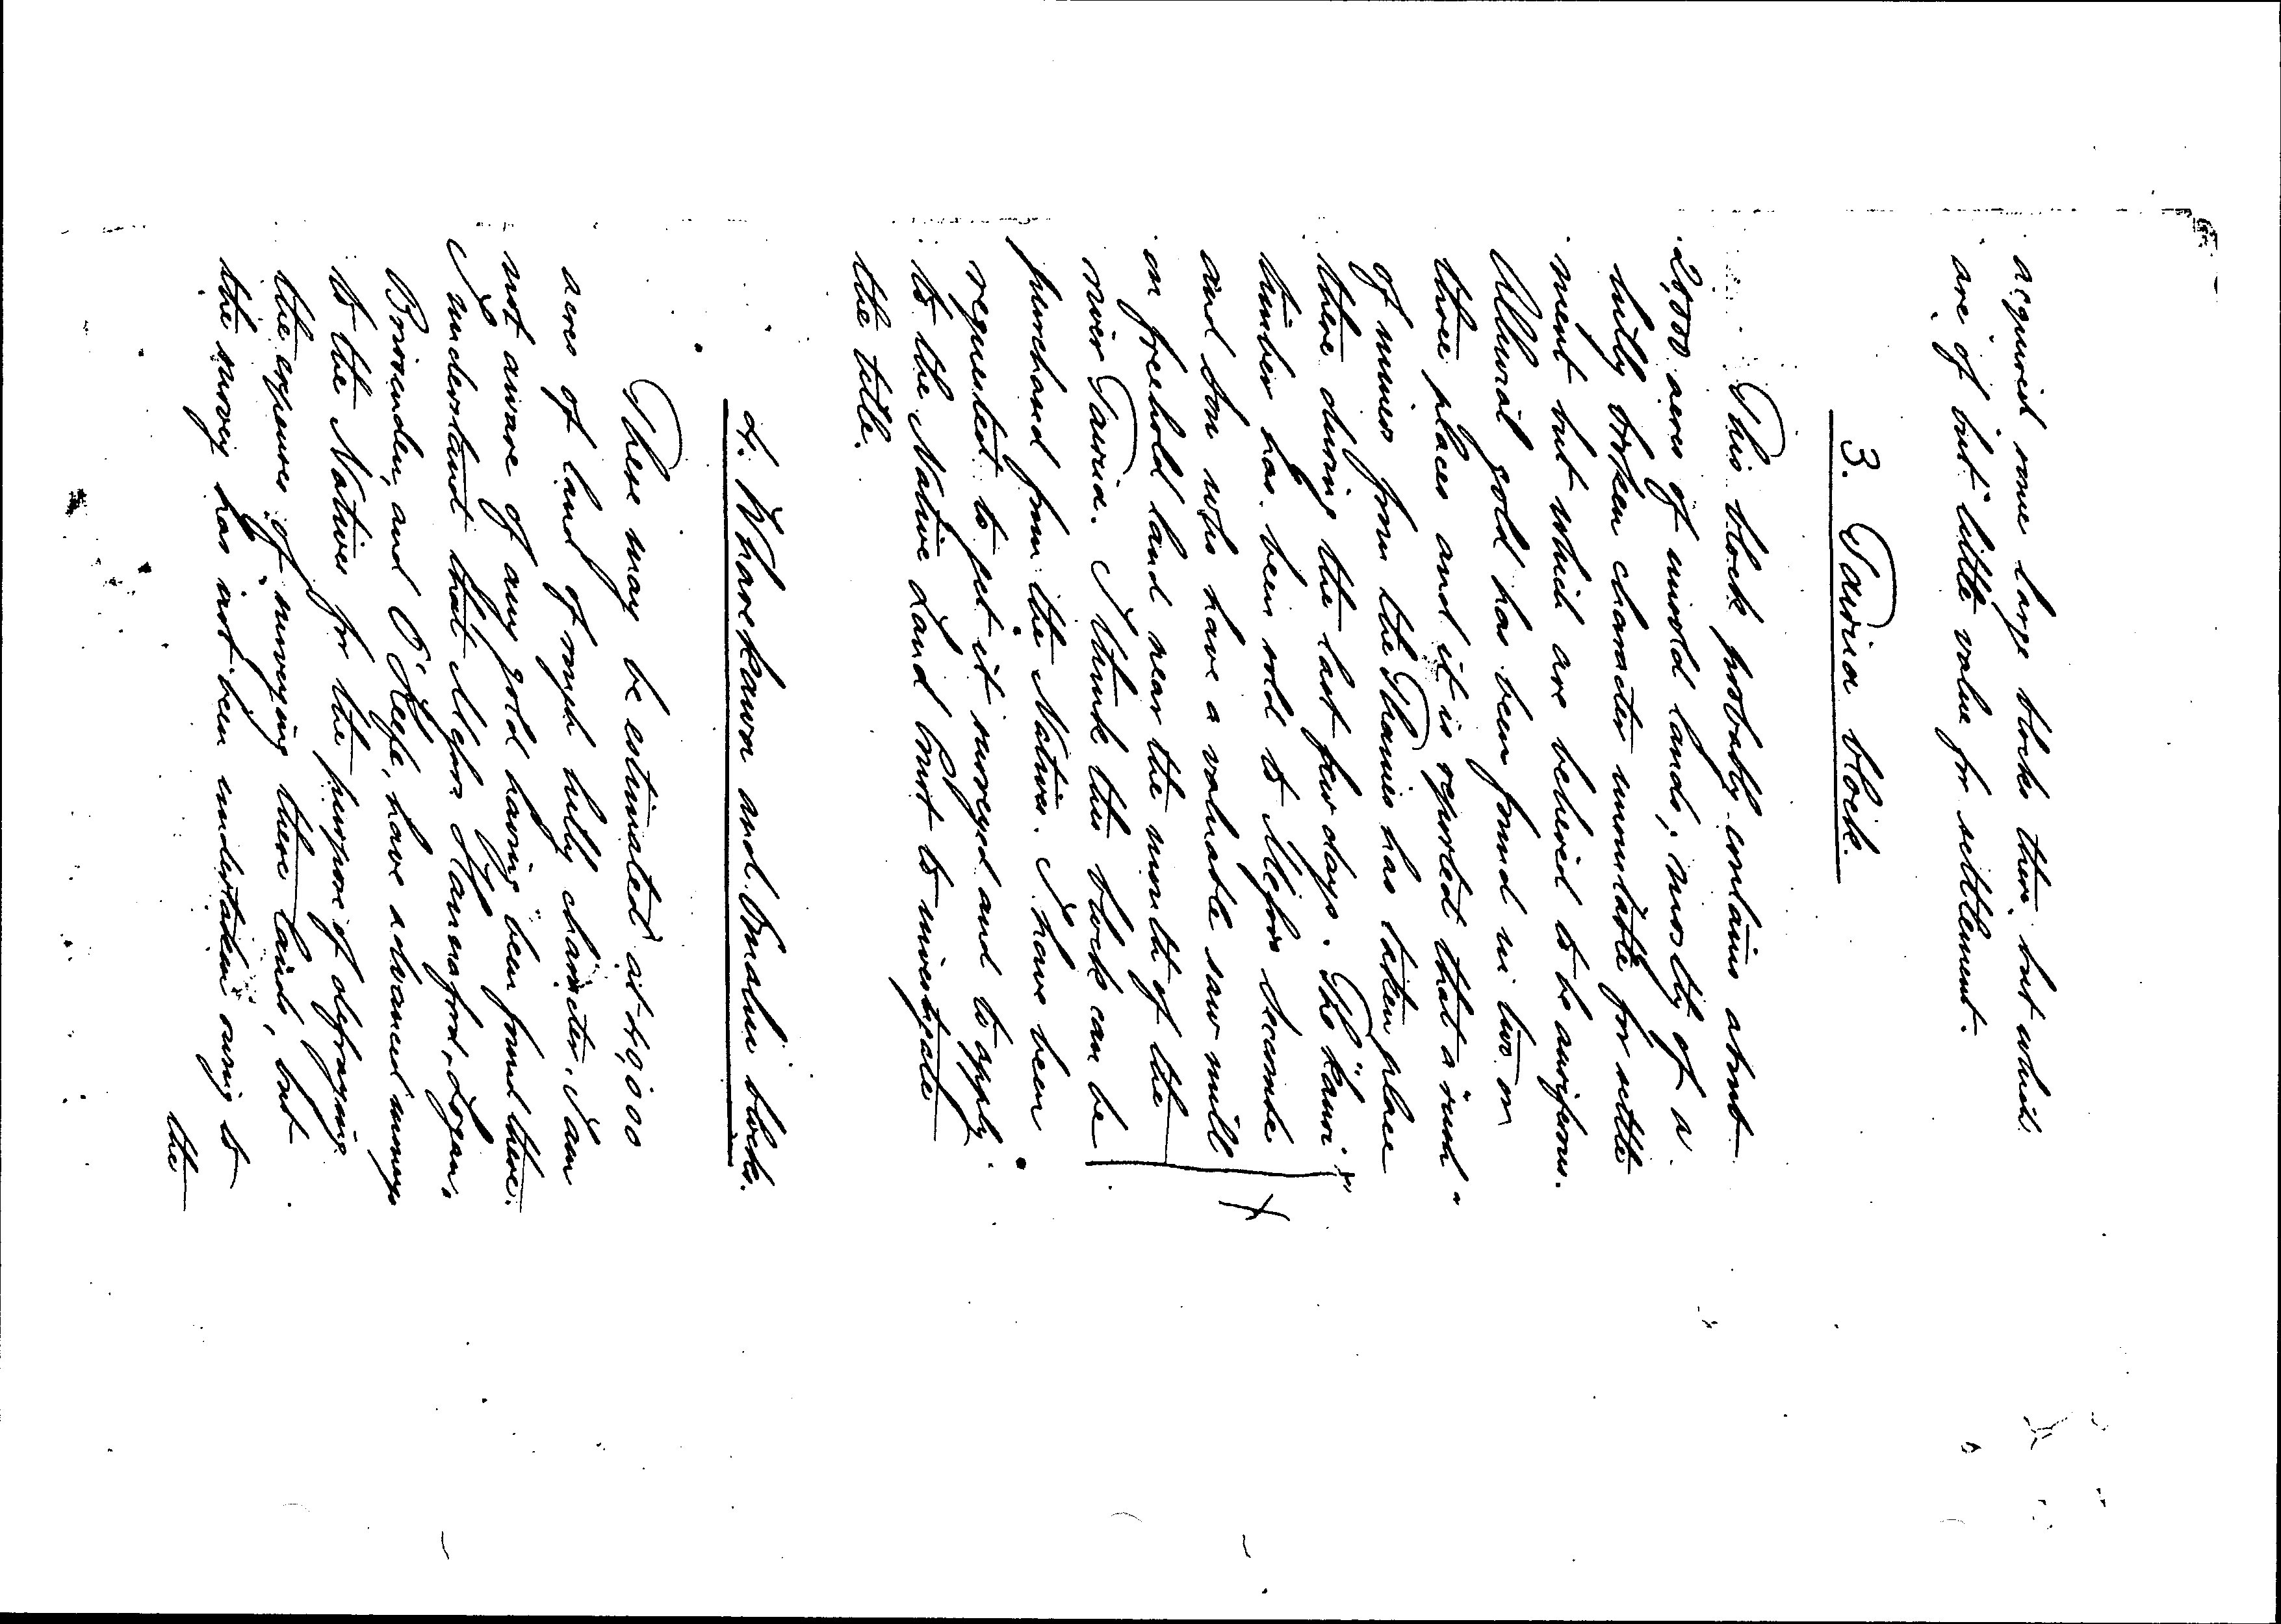 acquired some large blocks there, but which
are of but little value for settlement.
3. Tairua block.
This block probably contains about
25000 acres of unsold lands, mostly of a
hilly broken character unsuitable for settle
ment but which are believed to be auriferous.
Alluvial gold has been found in two or
three places and it is reported that a "rush"
of miners from the Thames has taken place
there during the last few days. The "kauri"
timber has been sold to Messrs Seccombe
and Son who have a valuable saw mill
on freehold land near the mouth of the
river Tairua. I think this block can be
purchased from the Natives. I have been
requested to get it surveyed and to apply
to the Native Land Court to investigate
the title.
4. Wharekawa and Omahu blocks.
These may be estimated at 40,000
acres of land of rough hilly character. I am
not aware of any gold having been found there.
I understand that Messrs Hannaford, Logan,
Brissenden, and O'Keefe, have advanced moneys
to the Natives for the purpose of defraying
the expenses of surveying these lands, but
the survey has not been undertaken owing to
the